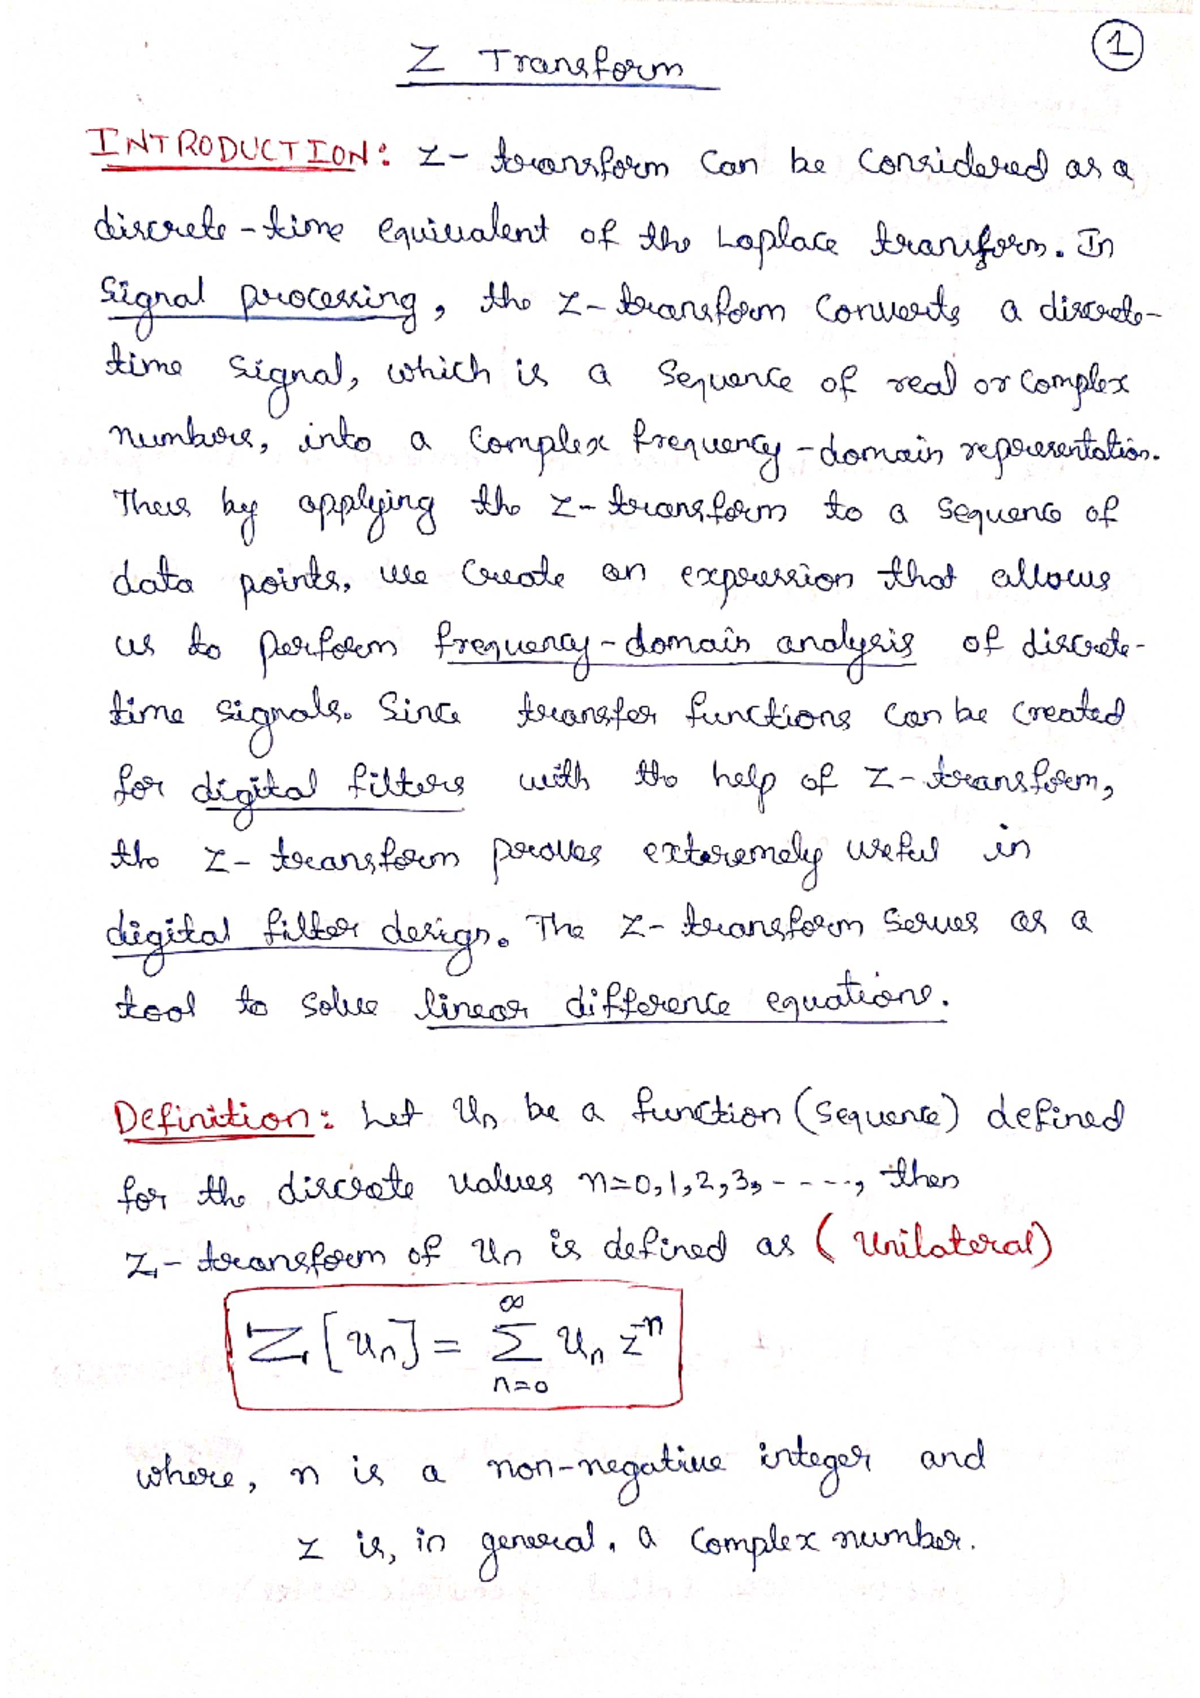 1
Z Transform
INTRODUCTION: Z- transform can be considered as a
discrete-time equivalent of the Laplace transform. In
Signal processing, the Z-transform converts a discrete-
time signal, which is a sequence of real or complex
numbers, into a complex frequency-domain representation.
Thus by applying the Z-transform to a sequence of
data points, we create an expression that allows
us to perform frequency-domain analysis of discrete-
time signals. Since transfer functions can be created
for digital filters with the help of Z-transform,
the Z-transform proves extremely useful in
digital filter design. The Z-transform serves as a
tool to solve linear difference equations.
Definition: Let Uₙ be a function (sequence) defined
for the discrete values n=0,1,2,3,----, then
Z-transform of Uₙ is defined as (Unilateral)
Z[uₙ] = ∑_{n=0}^{∞} uₙ z⁻ⁿ
where, n is a non-negative integer and
z is, in general, a complex number.